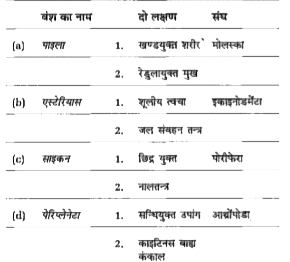 वंश का नाम दो लक्षण संघ
(a) पाइला 1. खण्डयुक्त शरीर मोलस्का
2. रेडुलायुक्त मुख
(b) एस्टेरियास 1. शूलीय त्वचा इकाइनोडर्मेटा
2. जल संवहन तन्त्र
(c) साइकन 1. छिद्र युक्त पोरीफेरा
2. नालतन्त्र
(d) पेरिप्लेनेटा 1. सन्धियुक्त उपांग आर्थ्रोपोडा
2. काइटिनस बाह्य
कंकाल